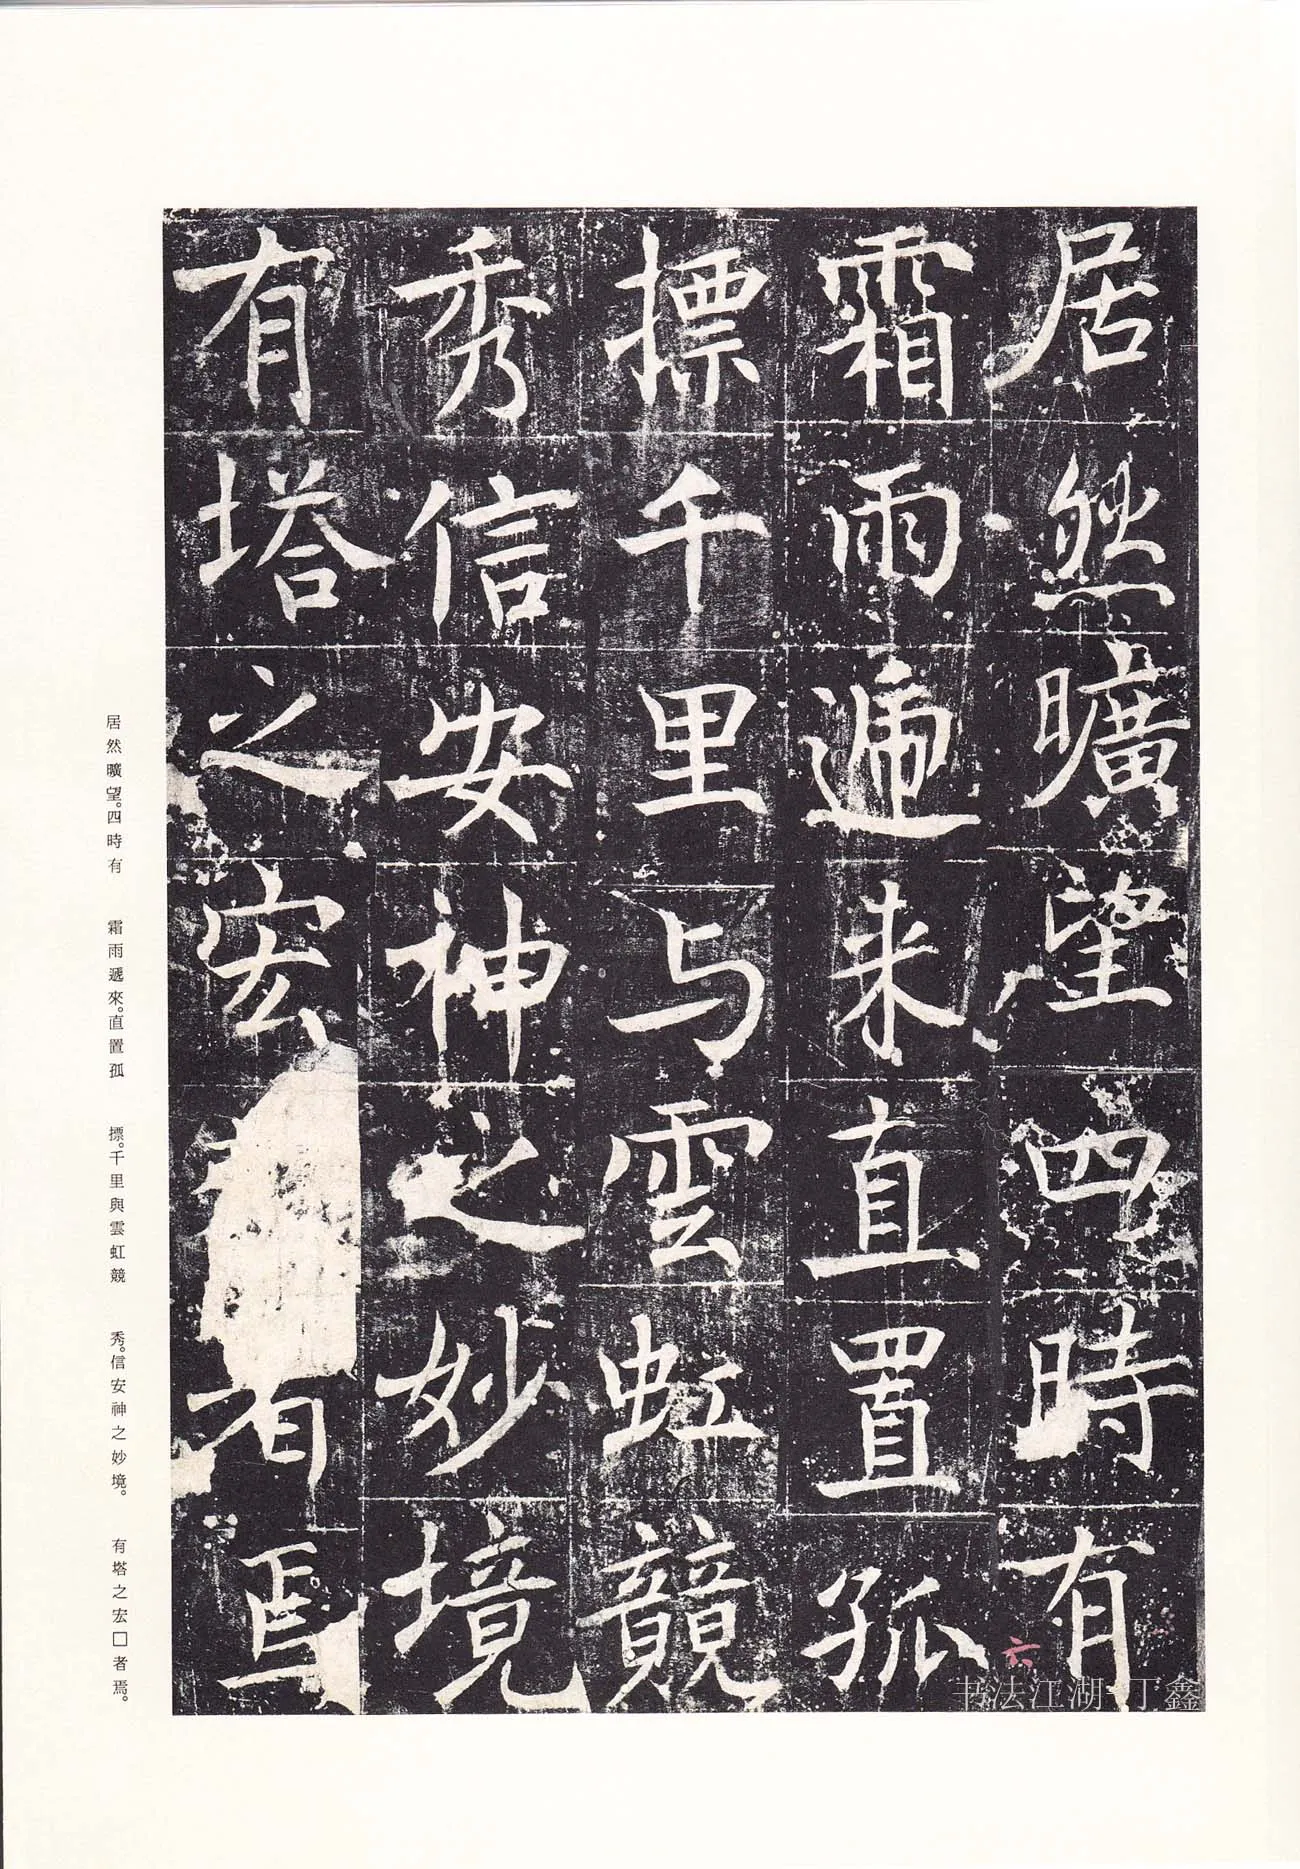 居然曠望四時有
霜雨遞来直置孤
摽千里与雲虹競
秀信安神之妙境
有塔之宏者焉
六
书法江湖-丁鑫
居然曠望。四時有 霜雨遞來。直置孤 摽。千里與雲虹競 秀。信安神之妙境。 有塔之宏□者焉。